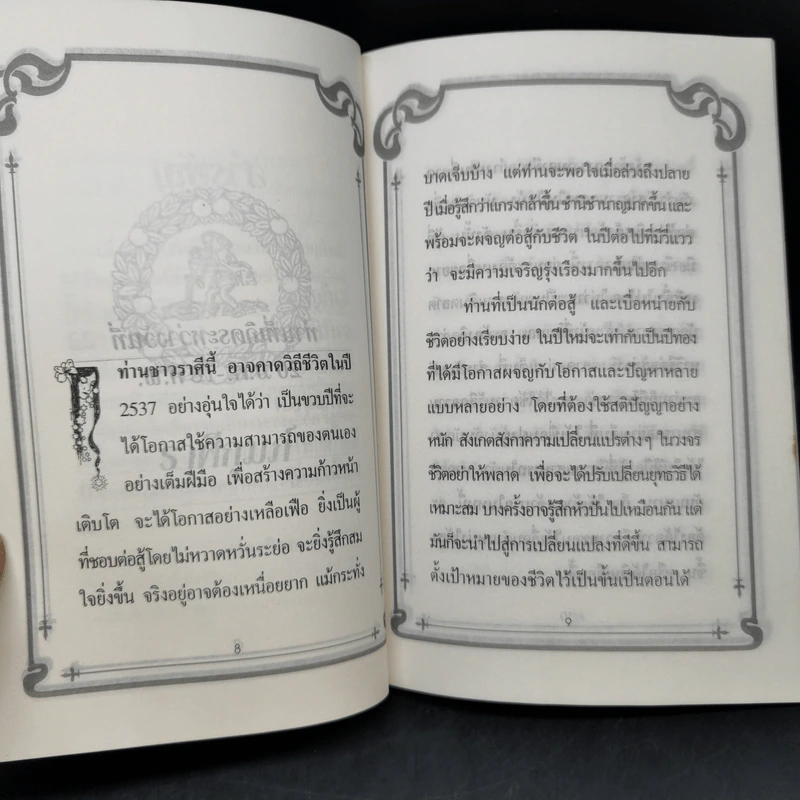 ท่านชาวราศีนี้ อาจคาดวิถีชีวิตในปี
2537 อย่างอุ่นใจได้ว่า เป็นขวบปีที่จะ
ได้โอกาสใช้ความสามารถของตนเอง
อย่างเต็มฝีมือ เพื่อสร้างความก้าวหน้า
เติบโต จะได้โอกาสอย่างเหลือเฟือ ยิ่งเป็นผู้
ที่ชอบต่อสู้โดยไม่หวาดหวั่นระย่อ จะยิ่งรู้สึกสม
ใจยิ่งขึ้น จริงอยู่อาจต้องเหนื่อยยาก แม้กระทั่ง
8
บาดเจ็บบ้าง แต่ท่านจะพอใจเมื่อล่วงถึงปลาย
ปี เมื่อรู้สึกว่าแกร่งกล้าขึ้น ชำนิชำนาญมากขึ้น และ
พร้อมจะผจญต่อสู้กับชีวิต ในปีต่อไปที่มีวี่แวว
ว่า จะมีความเจริญรุ่งเรืองมากขึ้นไปอีก
ท่านที่เป็นนักต่อสู้ และเบื่อหน่ายกับ
ชีวิตอย่างเรียบง่าย ในปีใหม่จะเท่ากับเป็นปีทอง
ที่ได้มีโอกาสผจญกับโอกาสและปัญหาหลาย
แบบหลายอย่าง โดยที่ต้องใช้สติปัญญาอย่าง
หนัก สังเกตสังกาความเปลี่ยนแปรต่างๆ ในวงจร
ชีวิตอย่าให้พลาด เพื่อจะได้ปรับเปลี่ยนยุทธวิธีได้
เหมาะสม บางครั้งอาจรู้สึกหัวปั่นไปเหมือนกัน แต่
มันก็จะนำไปสู่การเปลี่ยนแปลงที่ดีขึ้น สามารถ
ตั้งเป้าหมายของชีวิตไว้เป็นขั้นเป็นตอนได้
9